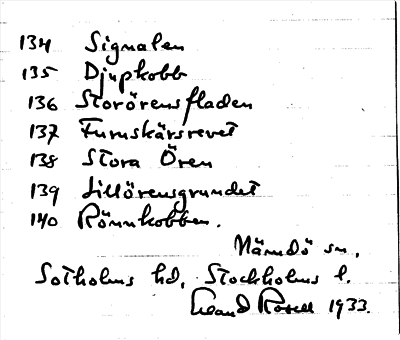 134 Signalen
135 Djupkobb
136 Storörensfladen
137 Furuskärsrevet
138 Stora Ören
139 Lillörensgrundet
140 Rönnkobben.
Nämdö sn.
Sotholms hd, Stockholms l.
Rosell 1933.